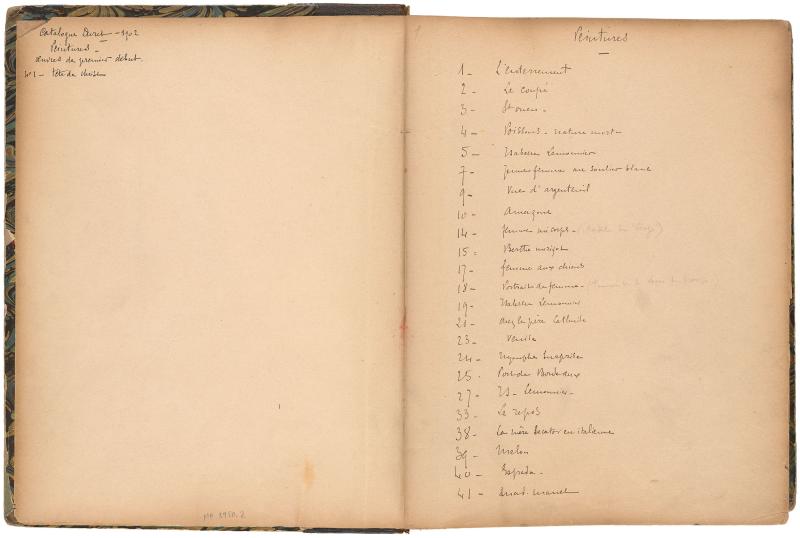 Catalogue Duret - 1902
Peintures -
œuvres du premier début.
N° 1 - Tête de chien
MA 3950.2
Peintures
1 - L'enterrement
2 - Le coupé
3 - St ouen -
4 - Poissons - nature morte
5 - Isabelle Lemonnier
7 - Jeune femme au soulier blanc
9 - Vue d'argenteuil
10 - Amazone
14 - femme mi corps -
15 - Berthe morizot
17 - femme aux chiens
18 - Portrait de femme -
19 - Isabelle Lemonnier
21 - chez le père Lathuile
23 - Venise
24 - Nymphe surprise
25 - Port de Bordeaux
27 - Is - Lemonnier -
33 - Le repos
38 - en italienne
39 - Melon
40 - Espada -
41 - manet